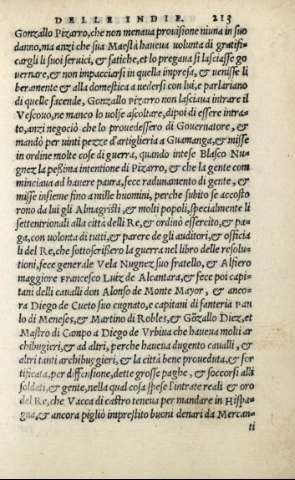 DELLE INDIE. 213
Gonzallo Pizarro, che non menaua prouisione niuna in suo
danno, ma anzi che sua Maestà haueua uolunta di gratifi-
cargli li suoi seruici, & fatiche, et lo pregaua si lasciasse go
uernare, & non impacciarsi in quella impresa, & uenisse li
beramente & alla domestica a uedersi con lui, e parlariano
di quelle facende, Gonzallo pizarro non lasciaua intrare il
Vescouo, ne manco lo uolse ascoltare, dipoi di essere intra-
to, anzi negociò che lo prouedessero di Gouernatore, &
mandò per uinti pezze d'artiglieria a Guamanga, & misse
in ordine molte cose di guerra, quando intese Blasco Nu-
gnez la pessima intentione di Pizarro, & che la gente com
minciaua ad hauere paura, fece radunamento di gente, &
misse insieme fino a mille huomini, perche subito se accosto
rono da lui gli Almagristi, & molti popoli, specialmente li
settentrionali alla città delli Re, & ordinò essercito, & pa-
ga, con uolonta di tutti, & parere de gli auditori, & officia
li del Re, che sottoscrissero la guerra nel libro delle resolu-
tioni, fece generale Vela Nugnez suo fratello, & Alfiero
maggiore Francesco Luiz de Alcantara, & fece poi capi-
tani delli caualli don Alonso de Monte Mayor, & anco-
ra Diego de Cueto suo cugnato, e capitani di fanteria pau
lo di Meneses, & Martino di Robles, & Gōzallo Diez, et
Mastro di Campo a Diego de Vrbina che haueua molti ar
chibugieri, & ad altri, perche haueua dugento caualli, &
altri tanti archibuggieri, & la città bene proueduta, & for
tificata, per diffensione, dette grosse paghe, & soccorsi alli
soldati, & gente, nella qual cosa spese l'intrate reali & oro
del Re, che Vacca di castro teneua per mandare in Hispa-
gna, & ancora pigliò imprestito buoni denari da Mercan-
ti